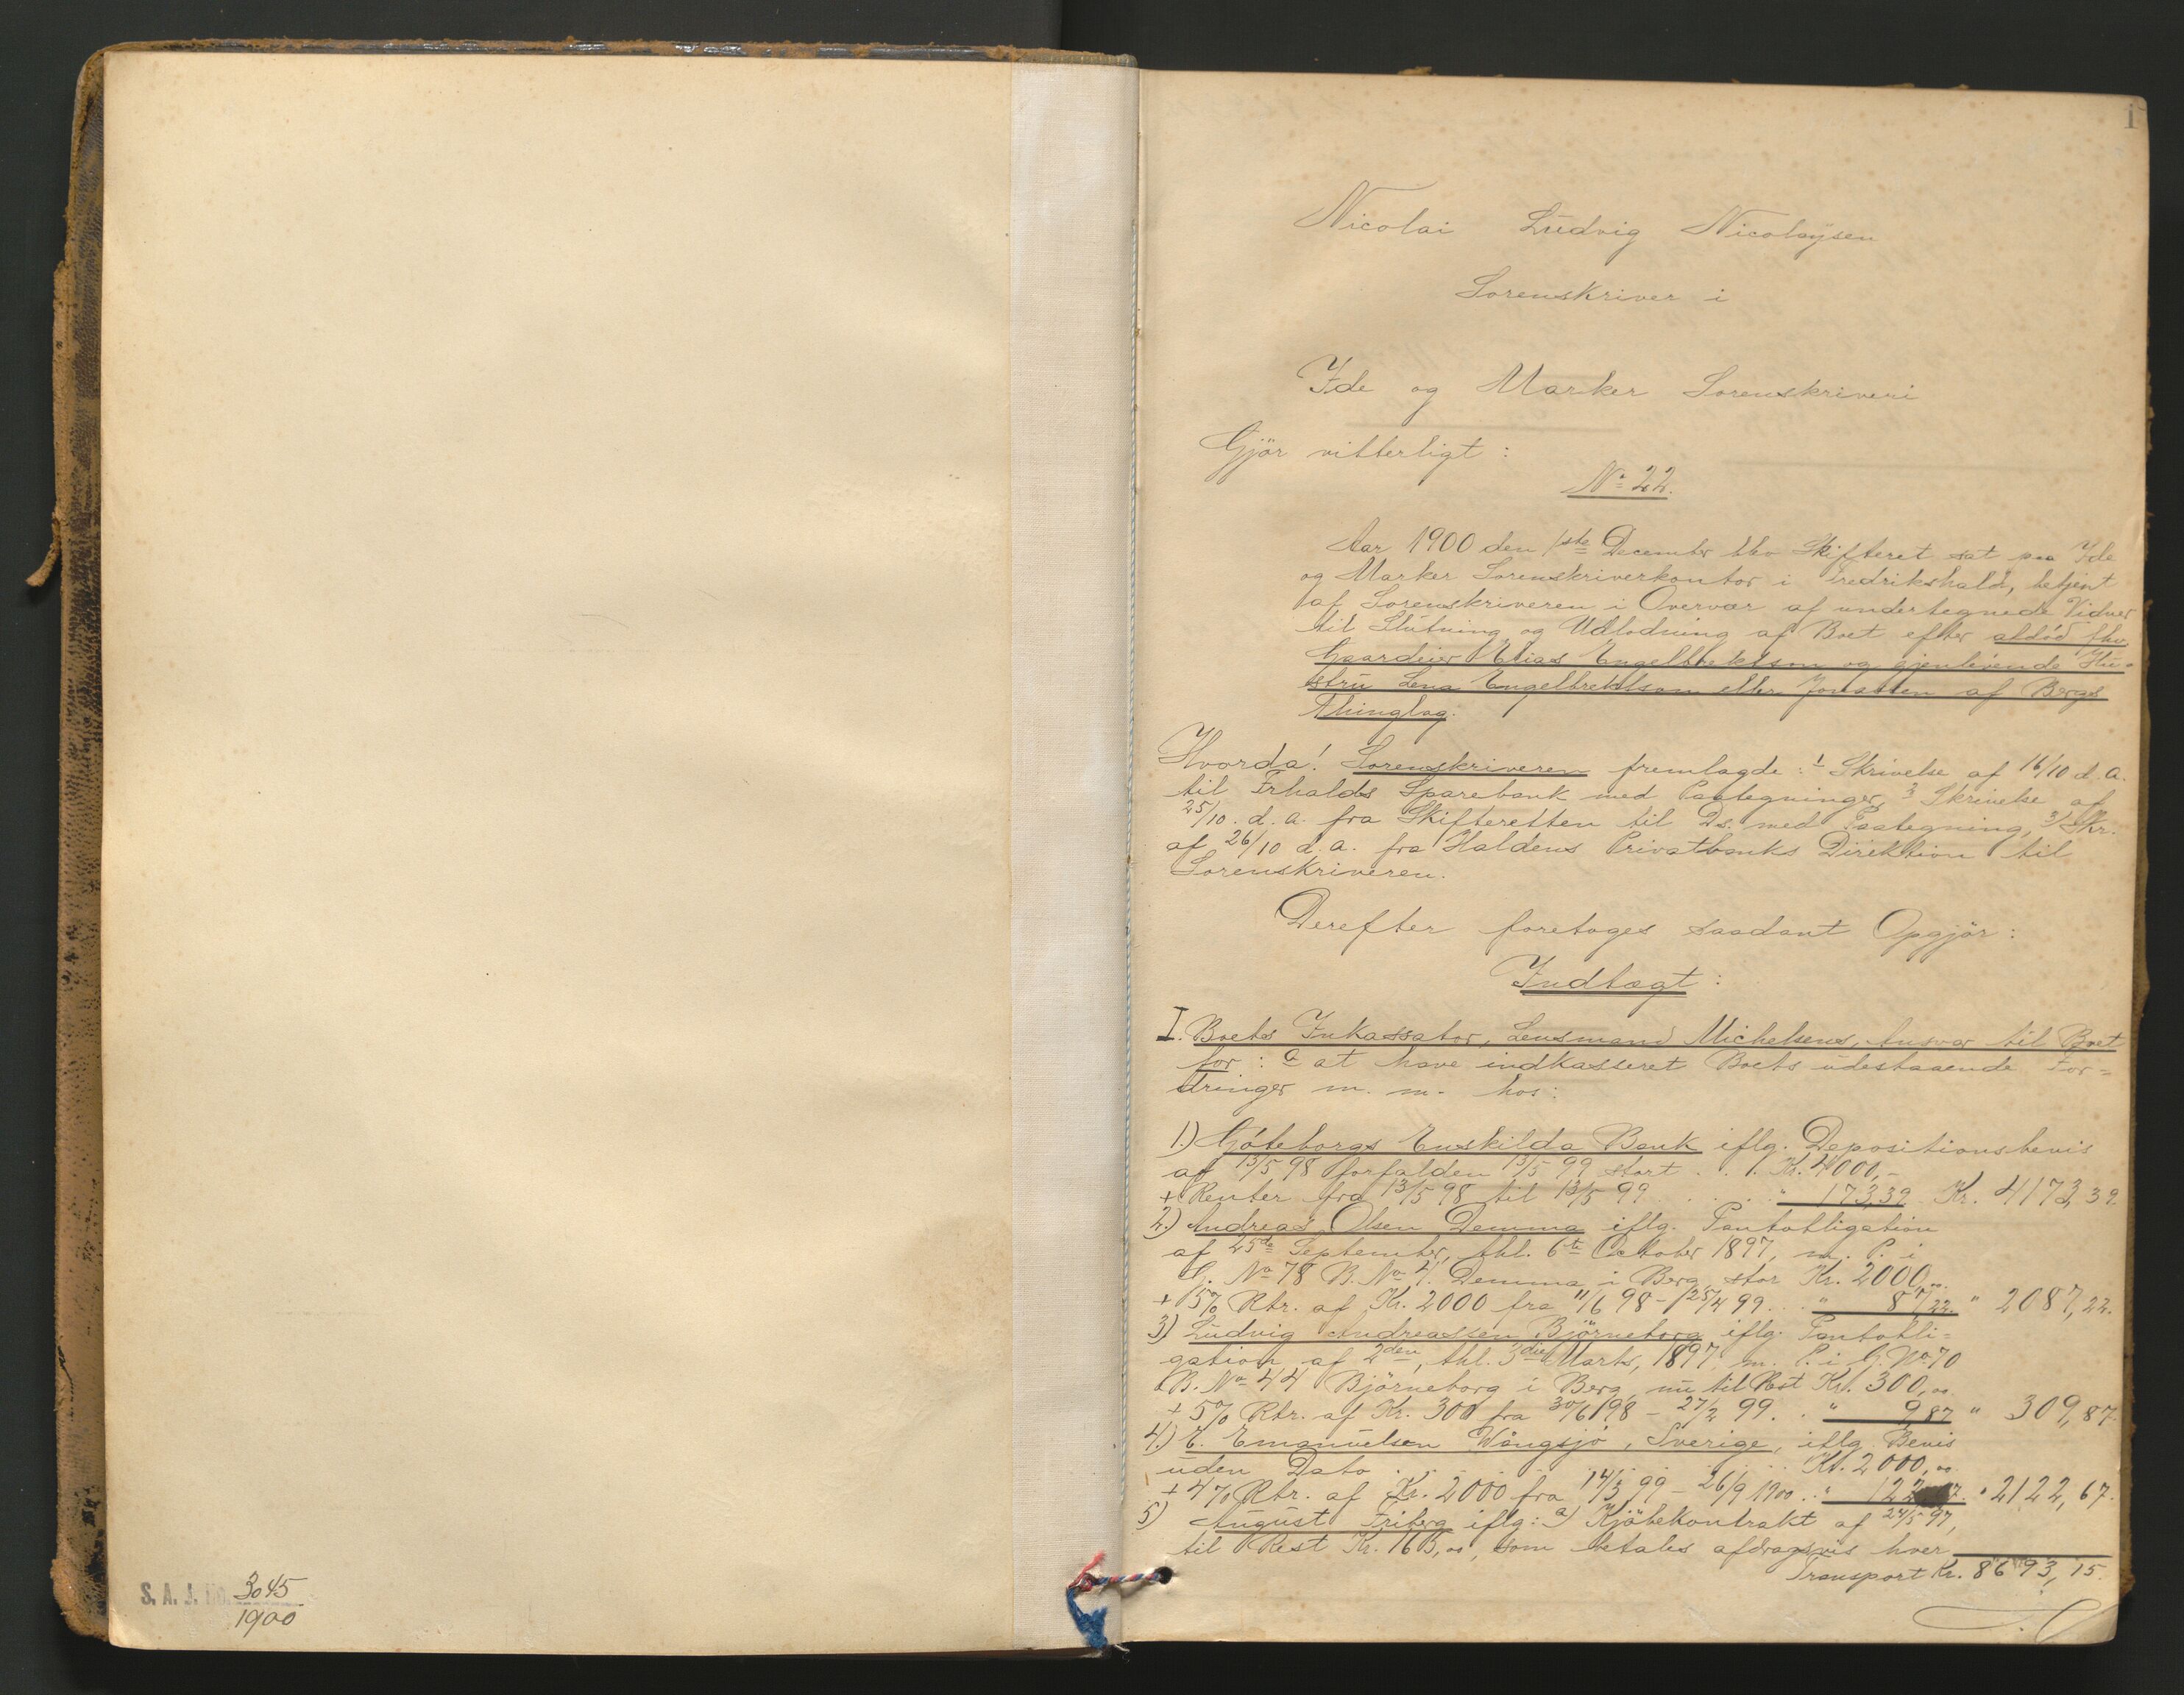 S. A. J. No. 3045
1900
1
Nicolai Ludvig Nicolaysen
Sorenskriver i
Ide og Marker Sorenskriveri
Gjör vitterligt:
No 22.
Aar 1900 den 1ste December blev Skifteret sat paa Ide
og Marker Sorenskriverkontor i Fredrikshald, betjent
af Sorenskriveren i Overvær af undertegnede Vidner
til Slutning og Udlodning af Boet efter afdöd fhv.
Gaardeier Elias Engelbrektson og gjenlevende Hu-
stru Lena Engelbrektson eller Jonassen af Bergs
Thinglag.
Hvorda! Sorenskriveren fremlagde: 1 Skrivelse af 16/10 d. A.
til Frhalds Sparebank med Paategninger, 2 Skrivelse af
25/10. d. a. fra Skifteretten til Ds. med Paategning, 3) Skr.
af 26/10 d. a. fra Haldens Privatbanks Direktion til
Sorenskriveren.
Derefter foretoges saadant Opgjör:
Indtægt:
I. Boets Inkassator, Lensmand Michelsens, Ansvar til Boet
for: a at have indkasseret Boets udestaaende For=
dringer m. m. hos:
1.) Göteborgs Enskilda Bank iflg. Depositionsbevis
af 13/5 98 forfalden 13/5 99 stort . . . Kr. 4000,-
+ Renter fra 13/5 98 til 13/5 99 . . . . " 173,39 Kr. 4173,39.
2.) Andreas Olsen Demma iflg. Pantobligation
af 25de September, thl. 6te October 1897, m. P. i
G. No 78 B. No 4. Demma i Berg stor Kr. 2000,00.
+ 5% Rtr. af Kr. 2000 fra 11/6 98 - 25/4 99. . . " 87,22. " 2087,22.
3) Ludvig Andreassen Björneborg iflg. Pantobli=
gation af 2den, thl. 3die Marts, 1897 m. P. i G. No 70
B. No 44 Björneborg i Berg, nu til Rest Kr. 300,00
+ 5% Rtr. af Kr. 300 fra 30/6 98 - 27/2 99. . " 9,87 " 309,87.
4.) E. Emanuelsen Wångsjö, Sverige, iflg. Bevis
uden Dato . . . . . . . Kr. 2000,00
+ 4% Rtr. af Kr. 2000 fra 14/3 99 - 26/9 1900. . " " 2122,67.
5) August Friberg iflg: a) Kjöbekontrakt af 24/5 97,
til Rest Kr. 163,00, som betales afdragsvis hver
Transport Kr. 8693,15.